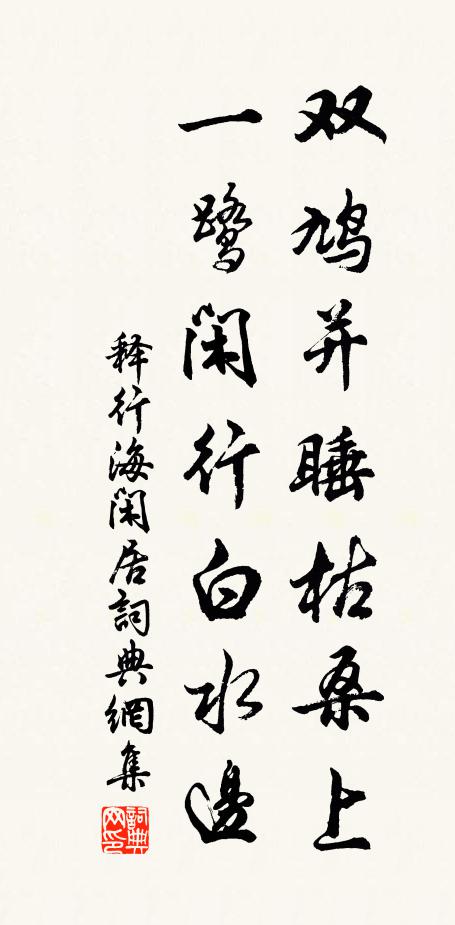 双鸠并睡枯桑上
一鹭闲行白水邊
释行海闲居詞典網集
詞典
网印